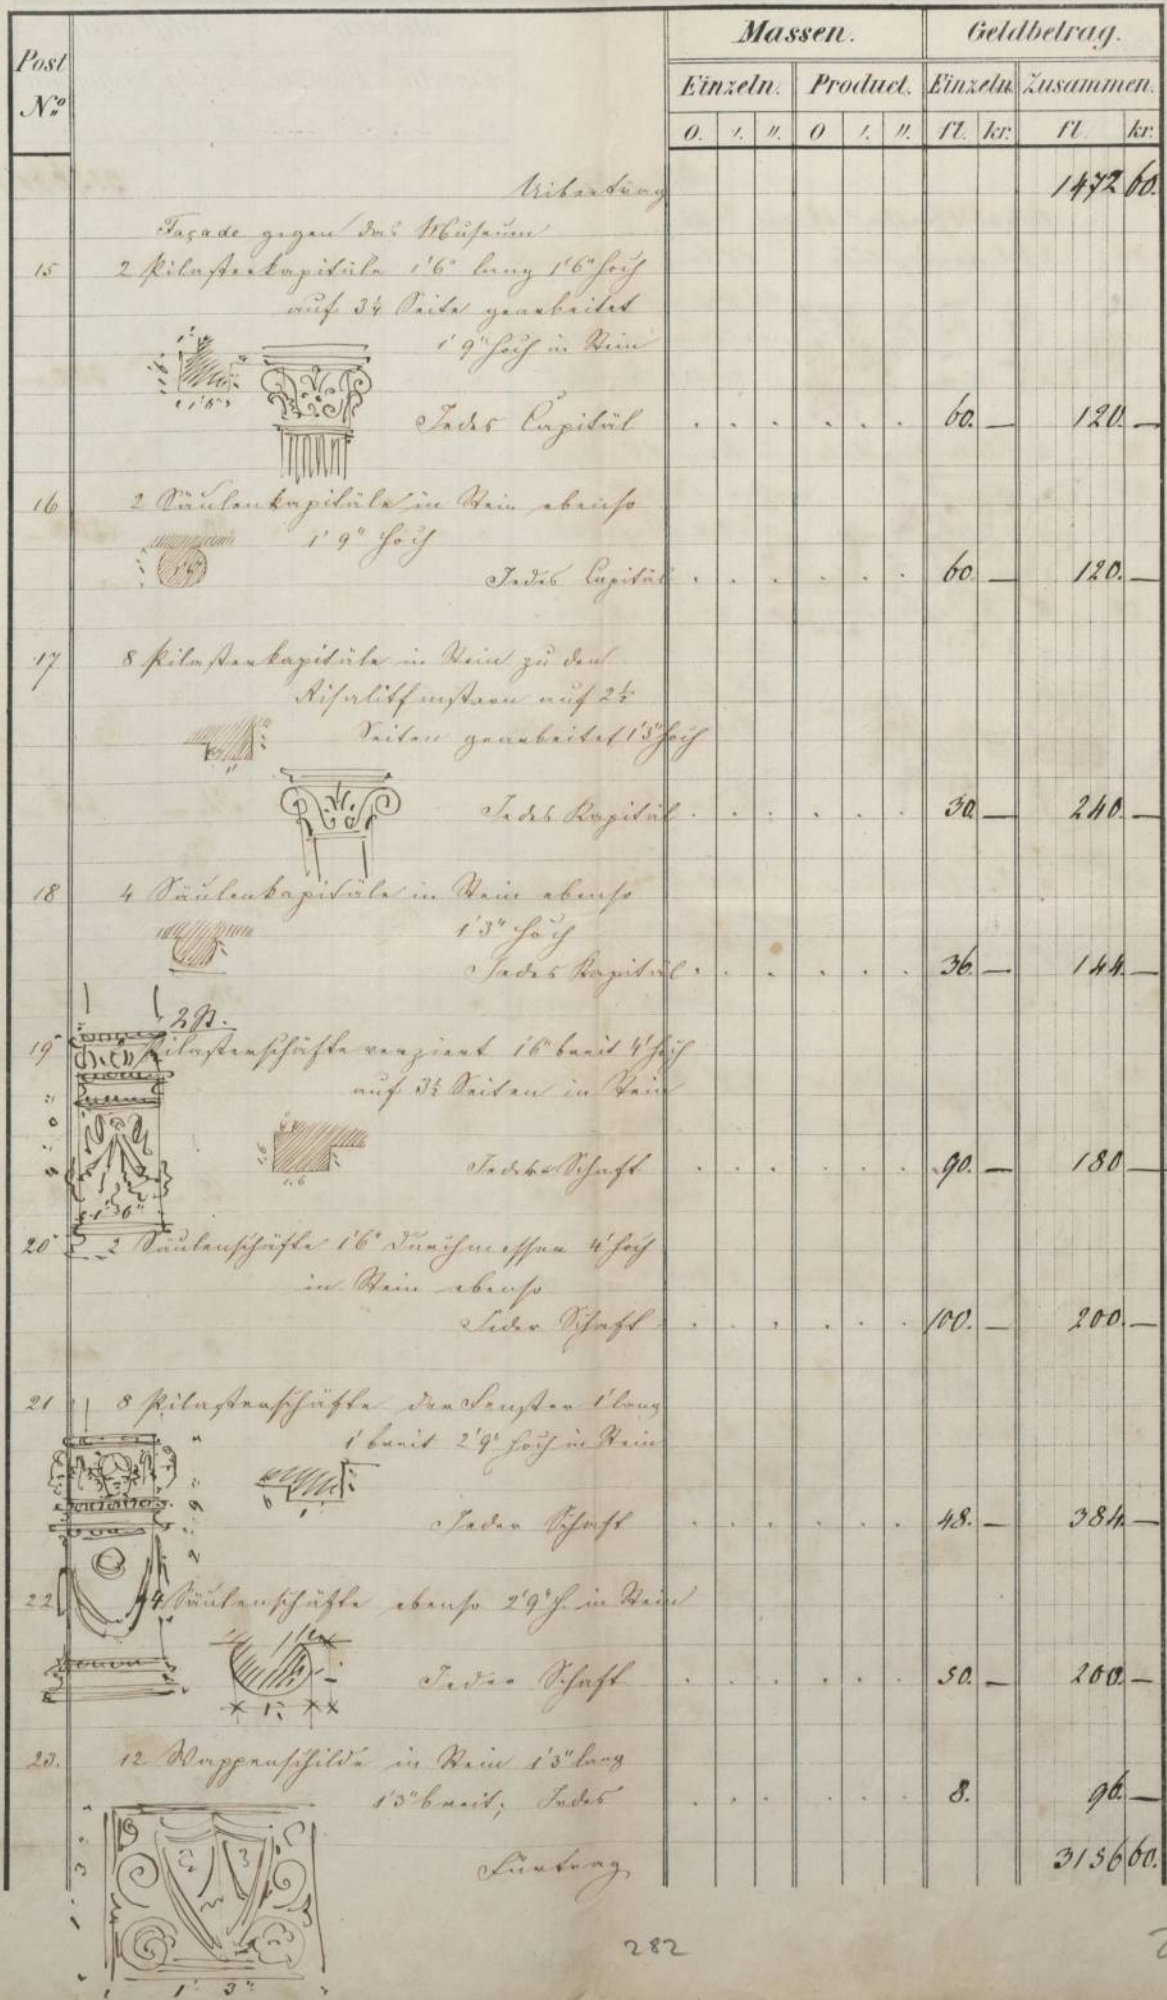 Massen. Geldbetrag.
Post No Einzeln. Product. Einzeln Zusammen.
0. ı. ıı. 0 ı. ıı. fl. kr. fl. kr.
Uibertrag 1472 60.
Façade gegen das Museum
15 2 Pilasterkapitäle 1'6" lang 1'6" hoch
auf 3½ Seite gearbeitet
1' 9" hoch in Stein
1'6"
Jedes Capitäl . . . . . . 60. — 120. —
16 2 Säulenkapitäle in Stein ebenso
1' 9" hoch
Jedes Capitäl . . . . . . 60 — 120. —
17 8 Pilasterkapitäle in Stein zu den
Risalitfenstern auf 2½
Seiten gearbeitet 1'3" hoch
Jedes Kapitäl . . . . . . 30 — 240. —
18 4 Säulenkapitäle in Stein ebenso
1'3" hoch
Jedes Kapitäl . . . . . . 36. — 144. —
2 St.
19 Pilasterschäfte verziert 1'6" breit 4' hoch
auf 3½ Seiten in Stein
1.6
Jeder Schaft . . . . . . 90. — 180 —
1'6"
20 2 Säulenschäfte 1'6" Durchmesser 4' hoch
in Stein ebenso
Jeder Schaft . . . . . . 100. — 200. —
21 8 Pilasterschäfte der Fenster 1' lang
1' breit 2'9" hoch in Stein
2' 9"
6 1'
Jeder Schaft . . . . . . 48. — 384 —
22 4 Säulenschäfte ebenso 2'9" h. in Stein
Jeder Schaft . . . . . . 50. — 200. —
1'
23. 12 Wappenschilde in Stein 1'3" lang
1'3" breit; Jedes . . . . . . 8. 96. —
Fürtrag 3156 60.
1' 3"
1' 3"
282